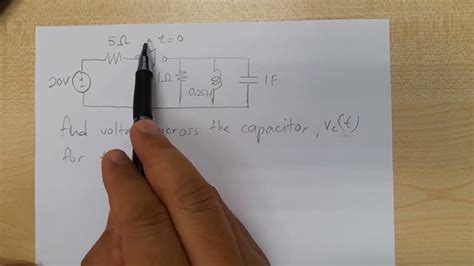 5Ω t=0
20V 1Ω 0.25H 1F
find voltage across the capacitor, vc(t)
for